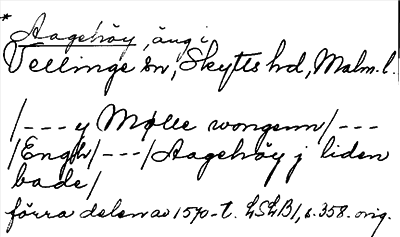 * Aagehöy, äng i
Vellinge sn, Skytts hd, Malm. l.
/---y Mølle wongenn/---
/Engh/---/Aagehöy j liden
bade/
förra delen av 1570-t. LSLB1, s. 358. orig.